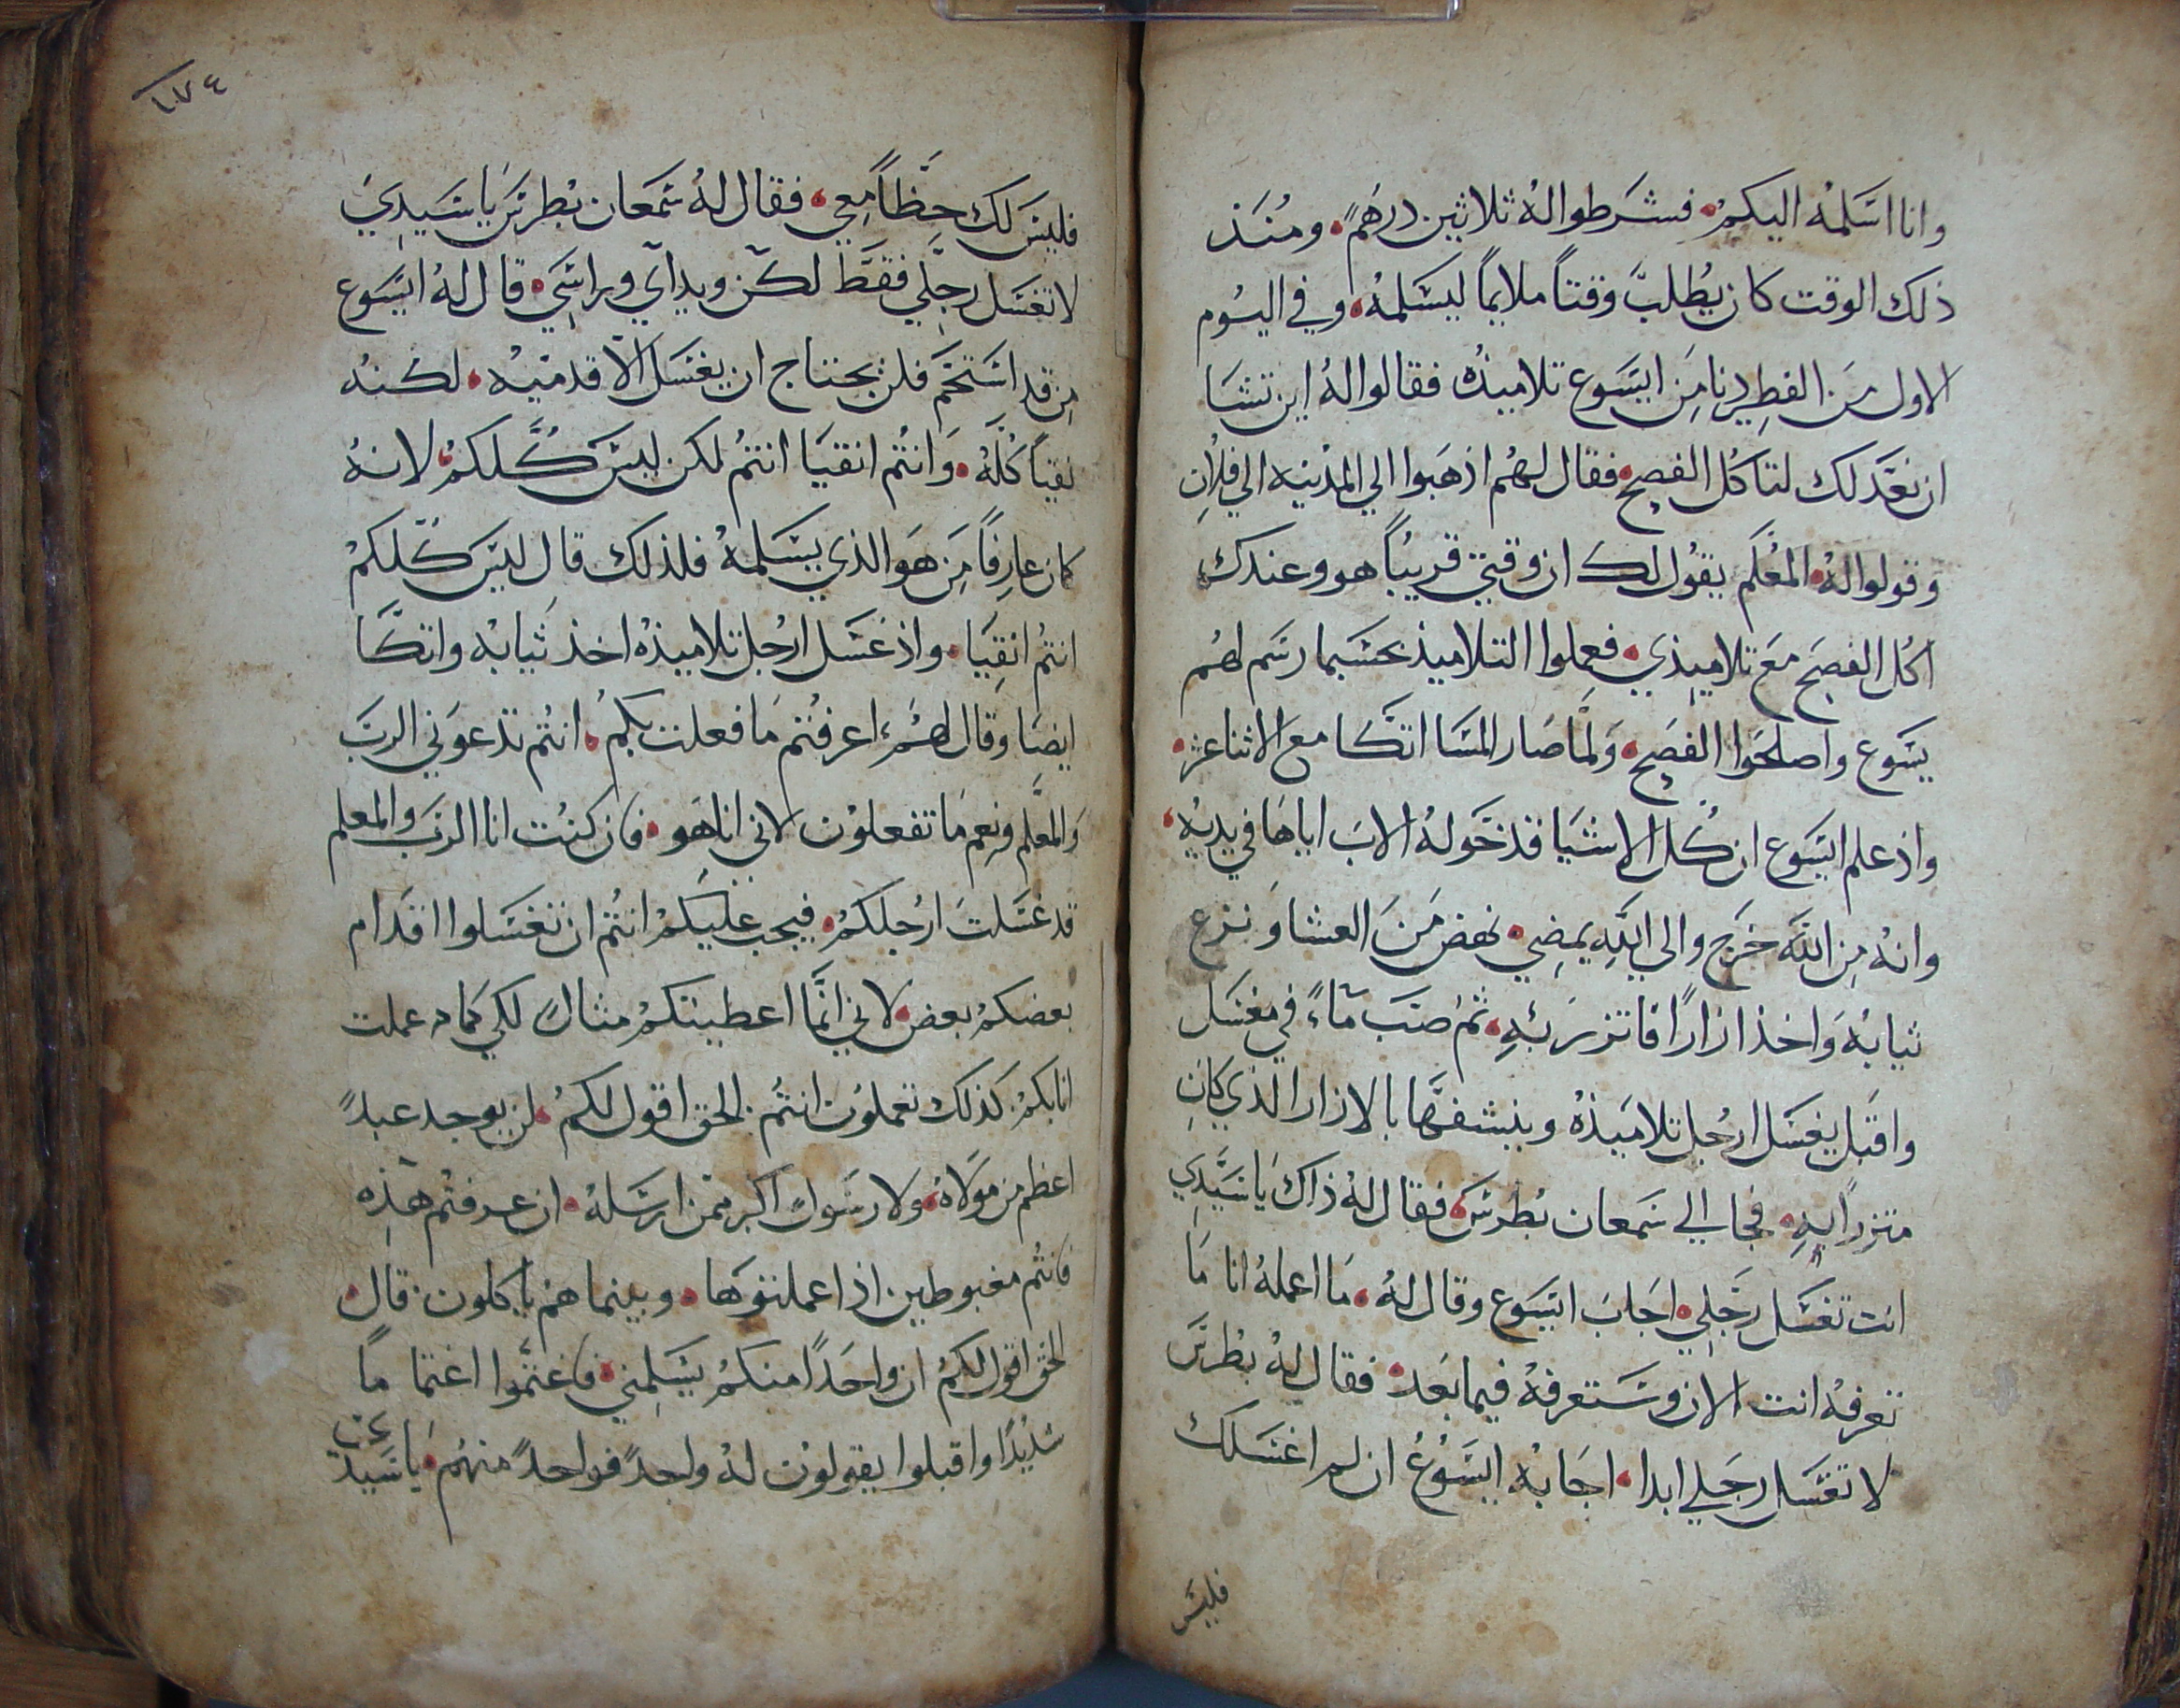 وانا اسلمه اليكم فشرطوا له ثلاثين درهم ومنذ
ذلك الوقت كان يطلب وقتاً ملايماً ليسلمه وفي اليوم
الاول من الفطير دنا من ايسوع تلاميذه فقالوا له اين تشا
ان نعد لك لتاكل الفصح فقال لهم اذهبوا الي المدينه الي فلان
وقولوا له المعلم يقول لك ان وقتي قريباً هو وعندك
اكل الفصح مع تلاميذي فعملوا التلاميذ بحسبما رسم لهم
يسوع واصلحوا الفصح ولما صار المسا اتكا مع الاثناعشر
واذ علم ايسوع ان كل الاشيا قد خوله الاب اياها في يديه
وانه من الله خرج والي الله يمضي نهض من العشا ونزع
ثيابه واخذ ازاراً فاتزر به ثم صب ماءً في مغسل
واقبل يغسل ارجل تلاميذه وينشفها بالازار الذي كان
متزراً به فجا الي سمعان بطرس فقال له ذاك يا سيدي
انت تغسل رجلي اجاب ايسوع وقال له ما اعمله انا ما
تعرفه انت الان وستعرفه فيما بعد فقال له بطرس
لا تغسل رجلي ابدا اجابه ايسوع ان لم اغسلك
فليس
١٧٤
فليس لك حظاً معي فقال له سمعان بطرس يا سيدي
لا تغسل رجلي فقط لكن ويداي وراسي قال له ايسوع
من قد استحم فلن يحتاج ان يغسل الا قدميه لكنه
نقياً كله وانتم انقيا انتم لكن ليس كلكم لانه
كان عارفاً من هو الذي يسلمه فلذلك قال ليس كلكم
انتم انقيا واذ غسل ارجل تلاميذه اخذ ثيابه واتكا
ايضا وقال لهم اعرفتم ما فعلت بكم انتم تدعوني الرب
والمعلم ونعم ما تفعلون لاني انا هو فان كنت انا الرب والمعلم
قد غسلت ارجلكم فيجب عليكم انتم ان تغسلوا اقدام
بعضكم بعض لاني انما اعطيتكم مثال لكي كما عملت
انا بكم كذلك تعملون انتم الحق اقول لكم لن يوجد عبد
اعظم من مولاه ولا رسول اكبر ممن ارسله ان عرفتم هذه
فانتم مغبوطين اذا عملتوها وبينما هم ياكلون قال
الحق اقول لكم ان واحداً منكم يسلمني فاغتموا اغتماماً
شديداً واقبلوا يقولون له واحد فواحد منهم يا سيد